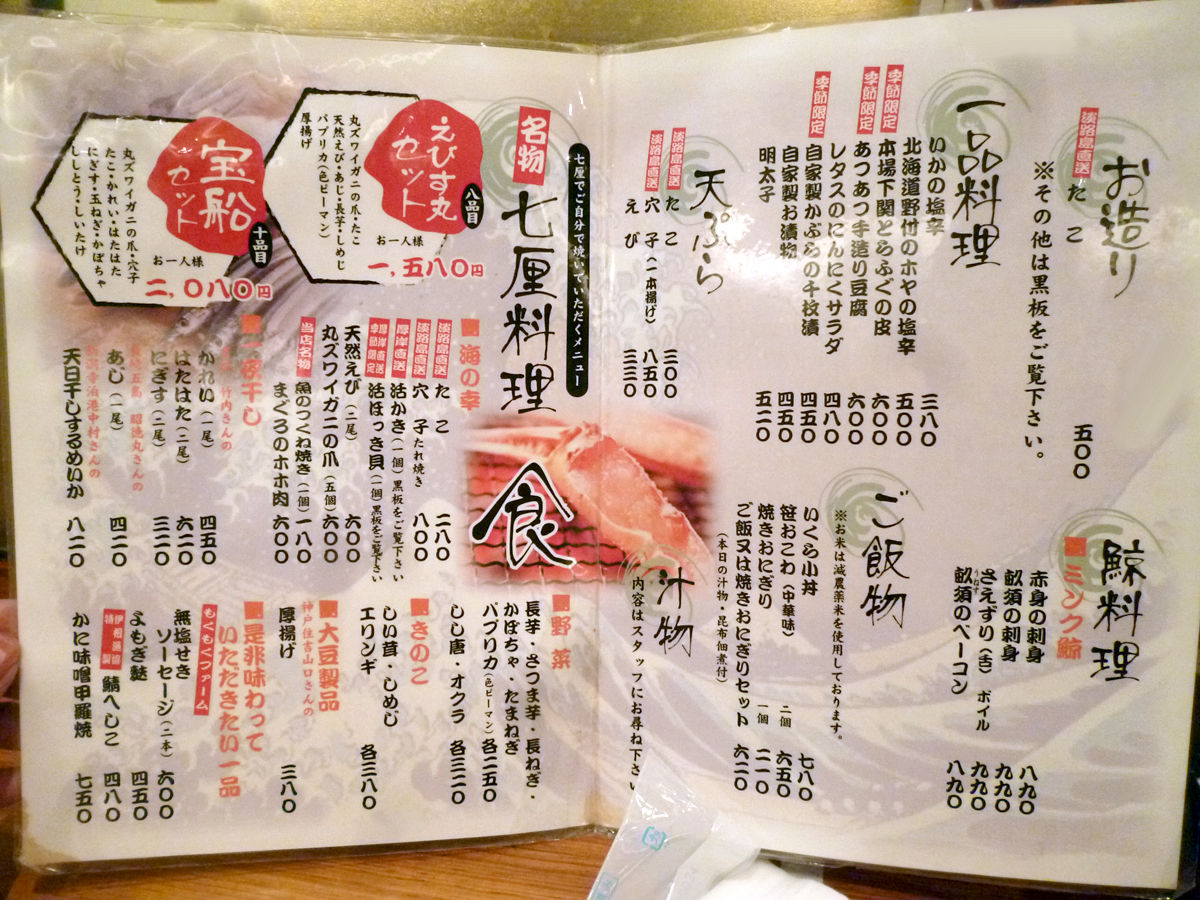 お造り
淡路島直送 たこ 五〇〇
※その他は黒板をご覧下さい。
一品料理
いかの塩辛 三八〇
季節限定 北海道野付のホヤの塩辛 五〇〇
季節限定 本場下関とらふぐの皮 六〇〇
あつあつ手造り豆腐 六〇〇
レタスのにんにくサラダ 四八〇
季節限定 自家製かぶらの千枚漬 四五〇
自家製お漬物 四五〇
明太子 五二〇
天ぷら
淡路島直送 たこ 三〇〇
淡路島直送 穴子(一本揚げ) 八五〇
えび 三三〇
鯨料理
ミンク鯨
赤身の刺身 八九〇
畝須の刺身 九九〇
さえずり(舌)ボイル 九九〇
うねす
畝須のベーコン 八九〇
ご飯物
※お米は減農薬米を使用しております。
いくら小丼 七八〇
笹おこわ(中華味) 二個 六五〇
焼きおにぎり 一個 二一〇
ご飯又は焼きおにぎりセット 六二〇
(本日の汁物・昆布佃煮付)
汁物
内容はスタッフにお尋ね下さい
七厘でご自分で焼いていただくメニュー
名物 七厘料理
食
えびす丸セット 八品目
お一人様
一,五八〇円
丸ズワイガニの爪・たこ
天然えび・あじ・長芋・しめじ
パプリカ(色ピーマン)
厚揚げ
宝船セット 十品目
お一人様
二,〇八〇円
丸ズワイガニの爪・穴子
たこ・かれい・はたはた
にぎす・玉ねぎ・かぼちゃ
ししとう・しいたけ
海の幸
淡路島直送 たこ 二八〇
淡路島直送 穴子 たれ焼き 八〇〇
厚岸直送 活かき(一個)黒板をご覧下さい
厚岸直送 季節限定 活ほっき貝(一個)黒板をご覧下さい
天然えび(二尾) 六〇〇
丸ズワイガニの爪(五個) 六〇〇
当店名物 魚のつくね焼き(一個) 一八〇
まぐろのホホ肉 六〇〇
一夜干し
竹内さんの
かれい(一尾) 四五〇
はたはた(二尾) 六二〇
にぎす(二尾) 三二〇
五島 昭徳丸さんの
あじ(一尾) 四二〇
泊港中村さんの
天日干しするめいか 八二〇
野菜
長芋・さつま芋・長ねぎ・
かぼちゃ・たまねぎ
パプリカ(色ピーマン) 各二五〇
しし唐・オクラ 各三二〇
きのこ
しい茸・しめじ
エリンギ 各三八〇
大豆製品
神戸住吉山口さんの
厚揚げ 三八〇
是非味わって
いただきたい一品
もくもくファーム
無塩せき
ソーセージ(二本) 六〇〇
よもぎ麩 四五〇
特製 鯖へしこ 四八〇
かに味噌甲羅焼 七五〇